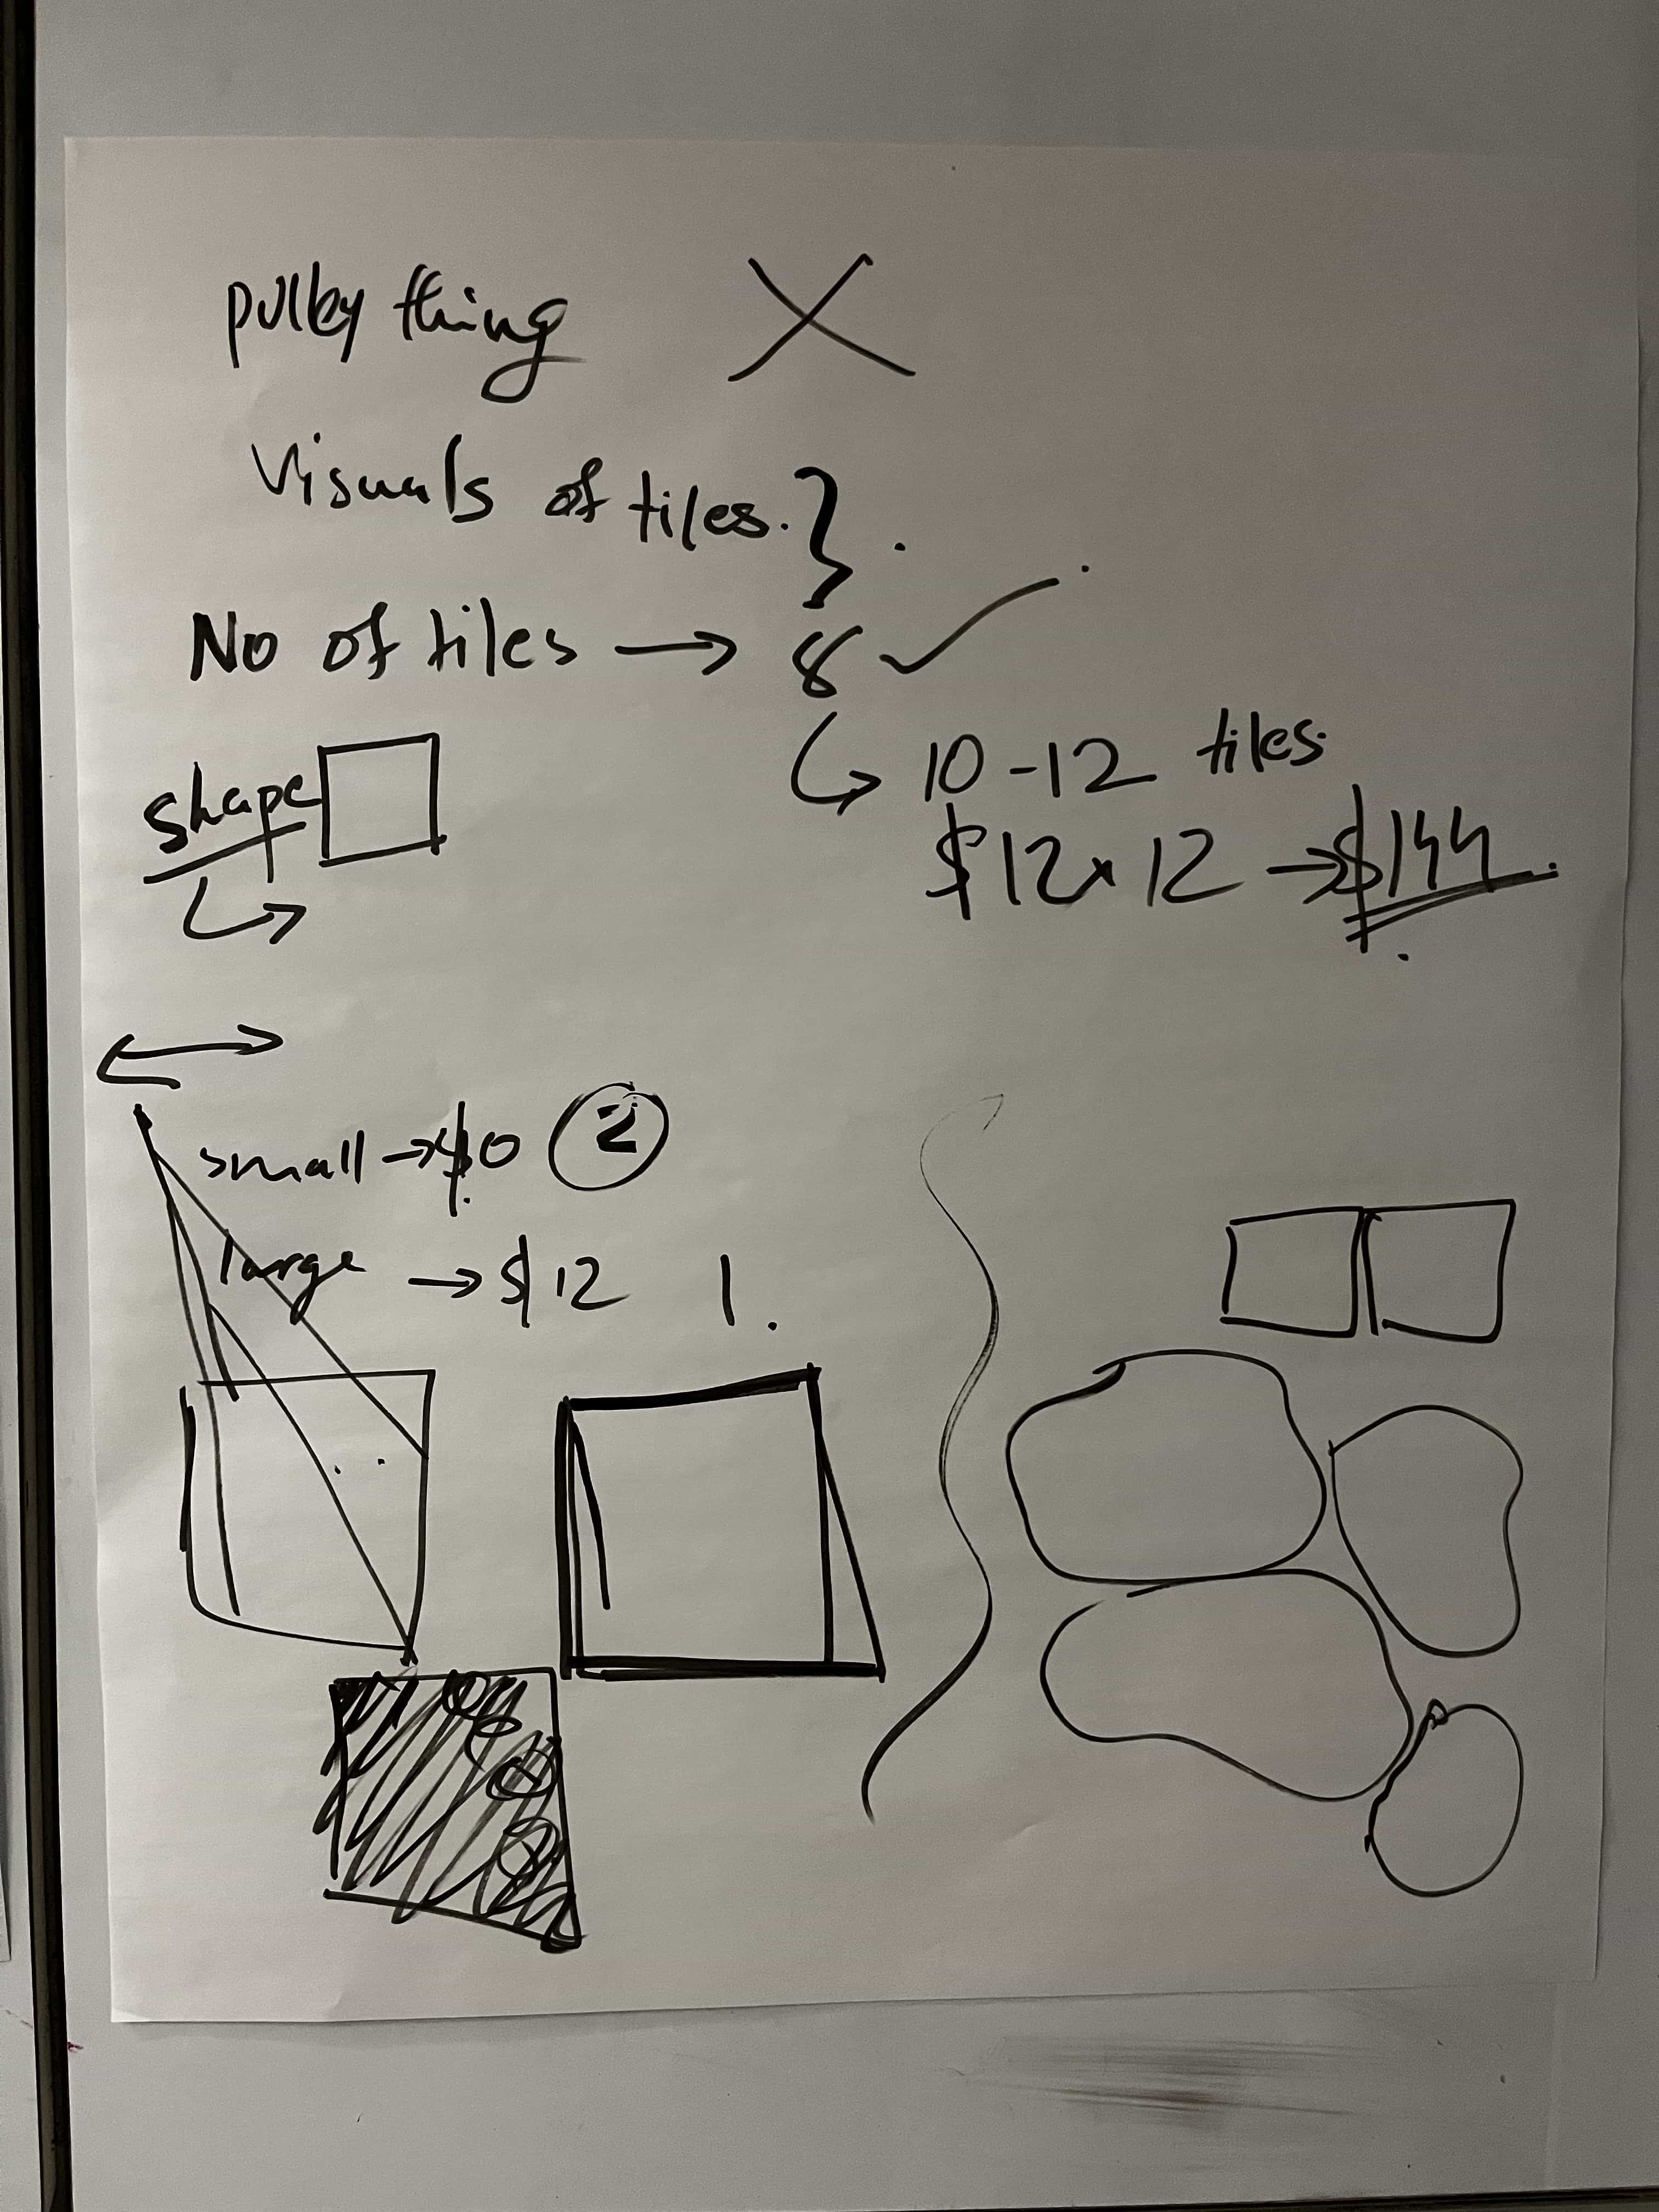 pulley thing X
Visuals of tiles. }
No of tiles → 8 ✓
10-12 tiles.
shape
$12 x 12 → $144
small → $0 2
large → $12 1.